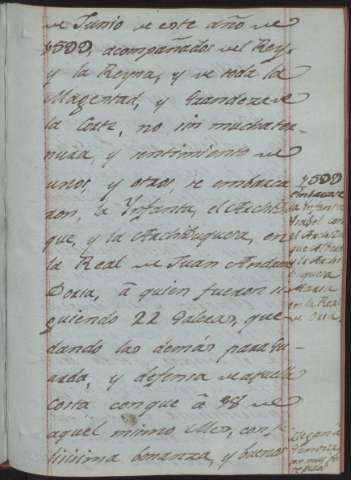 de Junio de este año de
1599, acompañados del Rey,
y la Reyna, y de toda la
Magestad, y Grandeza de
la Corte, no sin mucha ter-
nura, y sentimiento de
unos, y otros, se embarca
ron, la Ynfanta, el Archidu
que, y la Archiduquesa, en
la Real de Juan Andrea
Doria, à quien fueron si
guiendo 22 Galeras, que
dando las demás para Gu-
arda, y defensa de aquella
Costa con que à 18 de
aquel mismo Mes, con fe
licisima bonanza, y buenos
1599
Embarcase
la Ynfanta
Ysabel con
el Archidu
que Alberto
y la Archi
duquesa
Maria
en la Real
de Oria
Llegan à
Genova